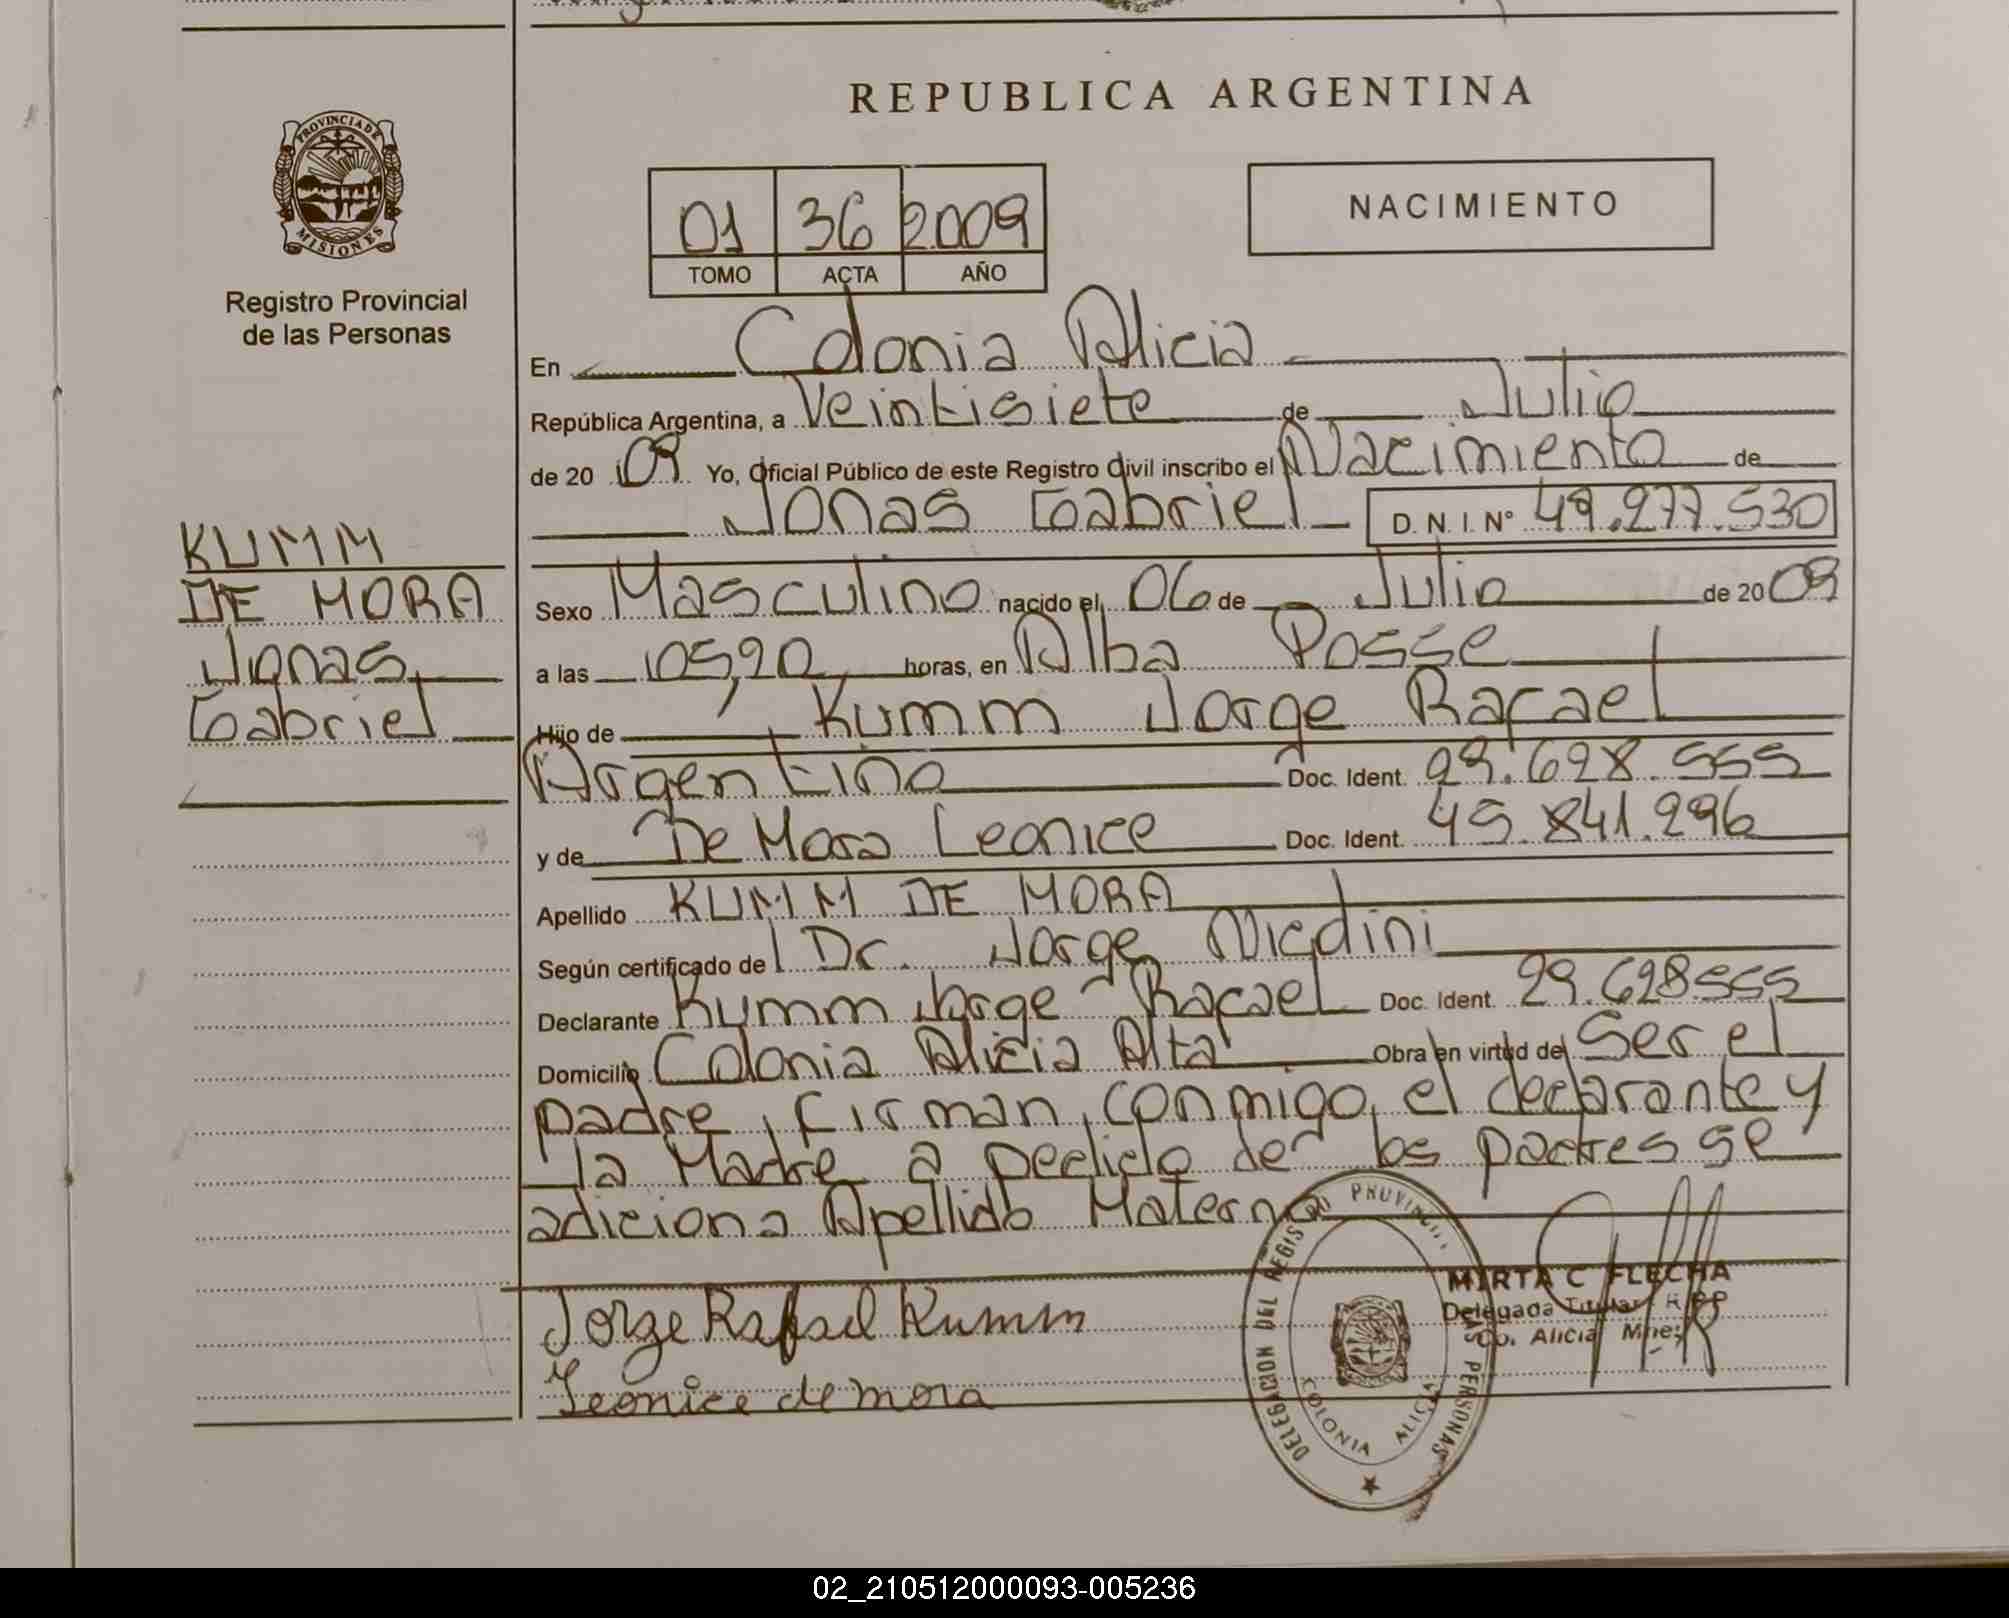 REPUBLICA ARGENTINA
PROVINCIA DE
MISIONES
Registro Provincial
de las Personas
01 36 2009
TOMO ACTA AÑO
NACIMIENTO
En Colonia Alicia
República Argentina, a Veintisiete de Julio
de 20 09 Yo, Oficial Público de este Registro Civil inscribo el Nacimiento de
Jonas Gabriel D.N.I. Nº 49.277.530
KUMM
DE MORA
Jonas
Gabriel
Sexo Masculino nacido el 06 de Julio de 20 09
a las 05,20 horas, en Alba Posse
Hijo de Kumm Jorge Rafael
Argentino Doc. Ident. 29.628.555
y de De Mora Leonice Doc. Ident. 45.841.296
Apellido KUMM DE MORA
Según certificado de Dr. Jorge
Declarante Kumm Jorge Rafael Doc. Ident. 29.628555
Domicilio Colonia Alicia Alta Obra en virtud de Ser el
padre, Firman, conmigo, el declarante y
la Madre a pedido de los padres se
adiciona Apellido Materno
Jorge Rafael Kumm
Leonice de mora
DELEGACION DEL REGISTRO PROVINCIAL DE LAS PERSONAS
COLONIA ALICIA
MIRTA C FLECHA
Delegada Titular R PP
Co. Alicia Mnes
02_210512000093-005236